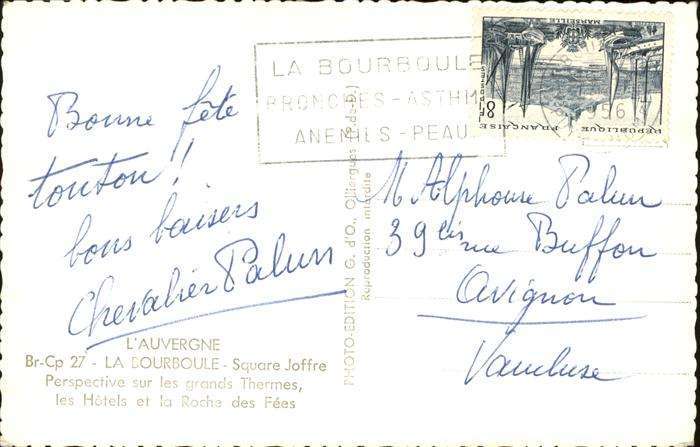 Bonne fête
tonton!!
bons baisers
Chevalier Palun
L'AUVERGNE
Br-Cp 27 - LA BOURBOULE - Square Joffre
Perspective sur les grands Thermes,
les Hôtels et la Roche des Fées
PHOTO-EDITION G. d'O., Olliergues (P.-de-D.)
Reproduction interdite
LA BOURBOULE
BRONCHES - ASTHM
ANEMIES - PEAU
MARSEILLE
8F
REPUBLIQUE FRANÇAISE
1956
M Alphonse Palun
39 bis rue Buffon
Avignon
Vaucluse